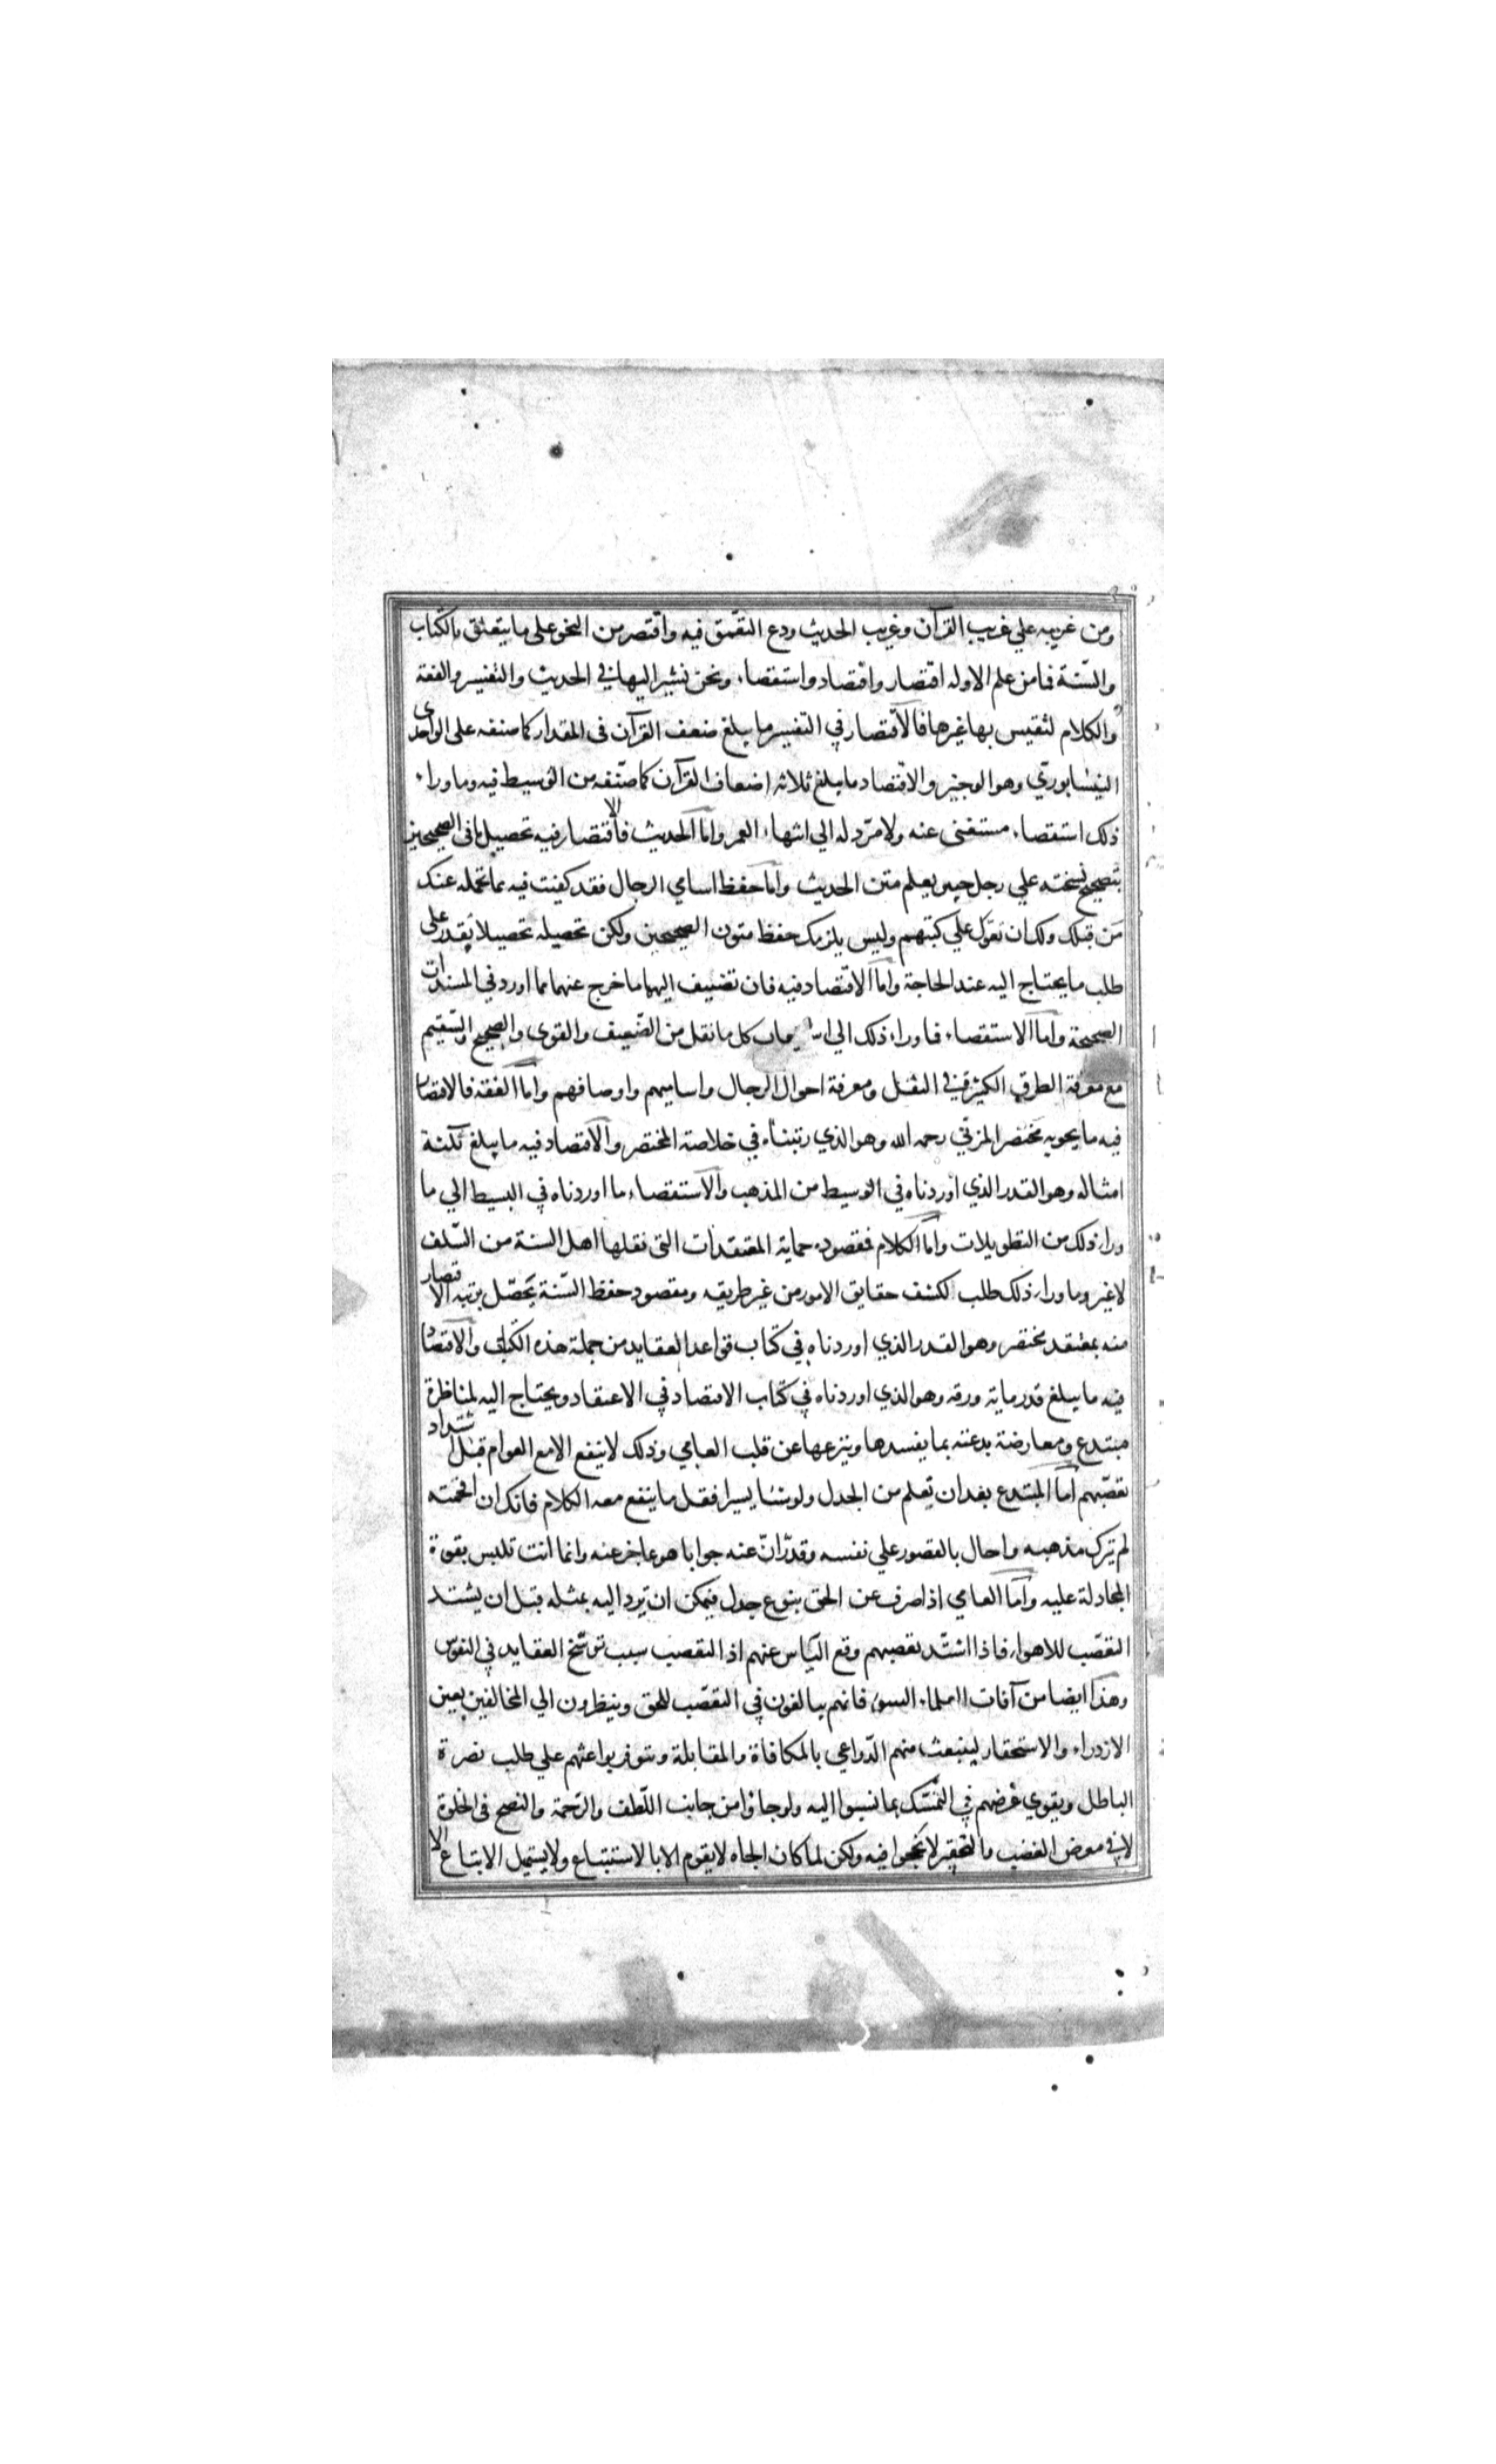 ومن غريبه علي غريب القرآن وغريب الحديث ودع التعمق فيه واقتصر من النحو على ما يتعلق بالكتاب
والسّنة فما من علم الا وله اقتصار واقتصاد واستقصاء ونحن نشير اليها في الحديث والتفسير والفقه
والكلام لتقيس بها غيرها فالاقتصار في التفسير ما يبلغ ضعف القرآن في المقدار كما صنفه على الواحدى
النيسابوريّ وهو الوجيز والاقتصاد ما يبلغ ثلاثه اضعاف القرآن كما صنّفه من الوسيط فيه وما وراء
ذلك استقصاء مستغنى عنه ولا مردّ له الي انتهاء العمر واما الحديث فالاقتصار فيه تحصيل ما في الصحيحين
بتصحيح نسخته علي رجل خبير بعلم متن الحديث واما حفظ اسامي الرجال فقد كفيت فيه بما تحمله عنك
من قبلك ولك ان تعول علي كتبهم وليس يلزمك حفظ متون الصحيحين ولكن تحصيله تحصيلا تقدر على
طلب ما يحتاج اليه عند الحاجة واما الاقتصاد فيه فان تضيف اليهما ما خرج عنهما مما اورد في المسندات
الصحيحة واما الاستقصاء فما وراء ذلك الي كل ما نقل من الضّعيف والقوى والصحيح والسّقيم
مع معرفة الطرق الكثيرة في النقل ومعرفة احوال الرجال واساميهم واوصافهم واما الفقه فالاقتصار
فيه ما يحويه مختصر المزنّي رحمه الله وهو الذي رتبناه في خلاصة المختصر والاقتصاد فيه ما يبلغ ثلثة
امثاله وهو القدر الذي اوردناه في الوسيط من المذهب والاستقصاء ما اوردناه في البسيط الي ما
وراء ذلك من التطويلات واما الكلام فمقصوده حماية المعتقدات التي نقلها اهل السنة من السّلف
لا غير وما وراء ذلك طلب لكشف حقايق الامور من غير طريقه ومقصود حفظ السّنة تحصّل برتبة الاقتصار
منه بمعتقد مختصر وهو القدر الذي اوردناه في كتاب قواعد العقايد من جملة هذه الكتاب والاقتصاد
فيه ما يبلغ قدر ماية ورقه وهو الذي اوردناه في كتاب الاقتصاد في الاعتقاد ويحتاج اليه لمناظرة
مبتدع ومعارضة بدعته بما يفسدها وينزعها عن قلب العامي وذلك لا ينفع الا مع العوام قبل اشتداد
تعصّبهم اما المبتدع بعد ان تعلم من الجدل ولو شيئا يسيرا فقل ما ينفع معه الكلام فانك ان افحمته
لم يترك مذهبه واحال بالقصور علي نفسه وقدّر انّ عنه جوابا هو عاجز عنه وانما انت تلبس بقوة
المجادلة عليه واما العامي اذا صرف عن الحق بنوع جدل فيمكن ان يرد اليه بمثله قبل ان يشتد
التعصّب للاهواء فاذا اشتّد تعصبهم وقع اليأس عنهم اذ التعصب سبب ترسّخ العقايد في النفوس
وهذا ايضا من آفات العلماء السوء فانهم يبالغون في التعصّب للحق وينظرون الي المخالفين بعين
الازدراء والاستحقار لينبعث منهم الدّواعي بالمكافاة والمقابلة وتتوفر بواعثهم علي طلب نصرة
الباطل ويقوي غرضهم في التمسّك بما نسبوا اليه ولو جاؤا من جانب اللّطف والرّحمة والنصح في الخلوة
لا في معرض الغضب والتحقير لانجحوا فيه ولكن لما كان الجاه لا يقوم الا بالاستتباع ولا يستميل الاتباع الا